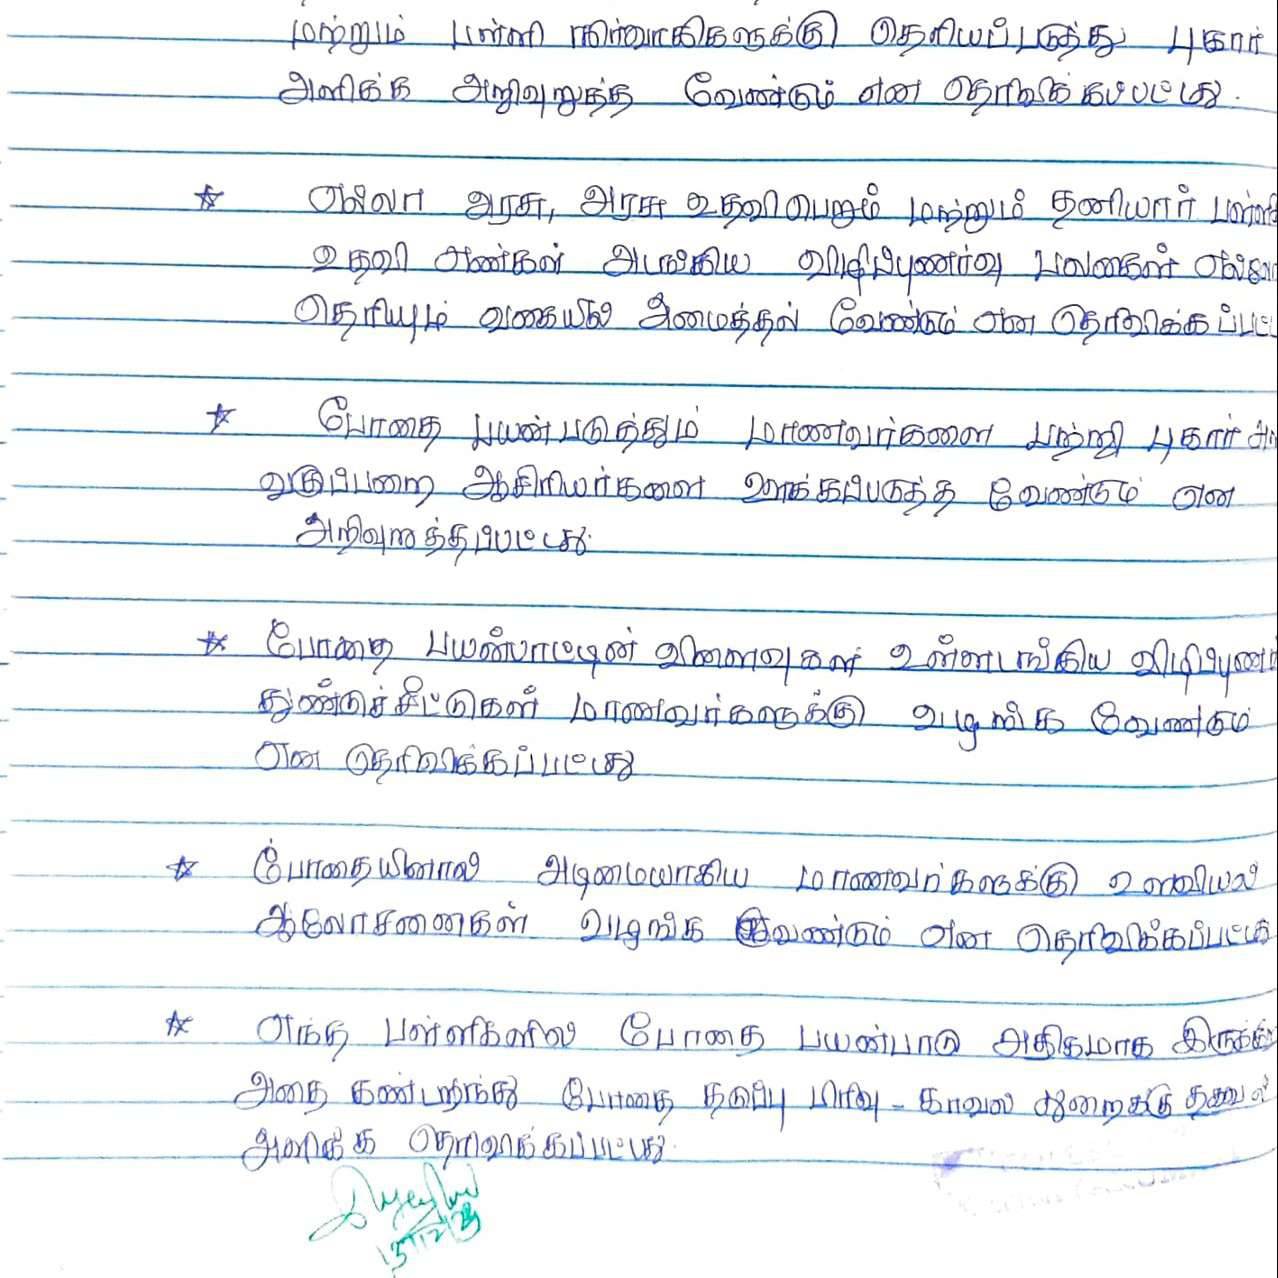 மற்றும் பள்ளி நிர்வாகிகளுக்கு தெரியப்படுத்து புகார்
அளிக்க அறிவுறுத்த வேண்டும் என தெரிவிக்கப்பட்டது.
★ எல்லா அரசு, அரசு உதவிபெறும் மற்றும் தனியார் பள்ளி
உதவி எண்கள் அடங்கிய விழிப்புணர்வு பலகைகள்
தெரியும் வகையில் அமைத்தல் வேண்டும் என தெரிவிக்கப்பட்ட
★ போதை பயன்படுத்தும் மாணவர்களை பற்றி புகார்
வகுப்பறை ஆசிரியர்களை ஊக்கப்படுத்த வேண்டும் என
அறிவுறுத்தப்பட்டது.
★ போதை பயன்பாட்டின் விளைவுகள் உள்ளடங்கிய விழிப்புணர்
துண்டுச்சீட்டுகள் மாணவர்களுக்கு வழங்க வேண்டும்
என தெரிவிக்கப்பட்டது
★ போதையினால் அடிமையாகிய மாணவர்களுக்கு உளவியல்
ஆலோசனைகள் வழங்க வேண்டும் என தெரிவிக்கப்பட்டது
★ எந்த பள்ளிகளில் போதை பயன்பாடு அதிகமாக
அதை கண்டறிந்து போதை தடுப்பு பிரிவு - காவல் துறைக்கு தகவல்
அளிக்க தெரிவிக்கப்பட்டது.